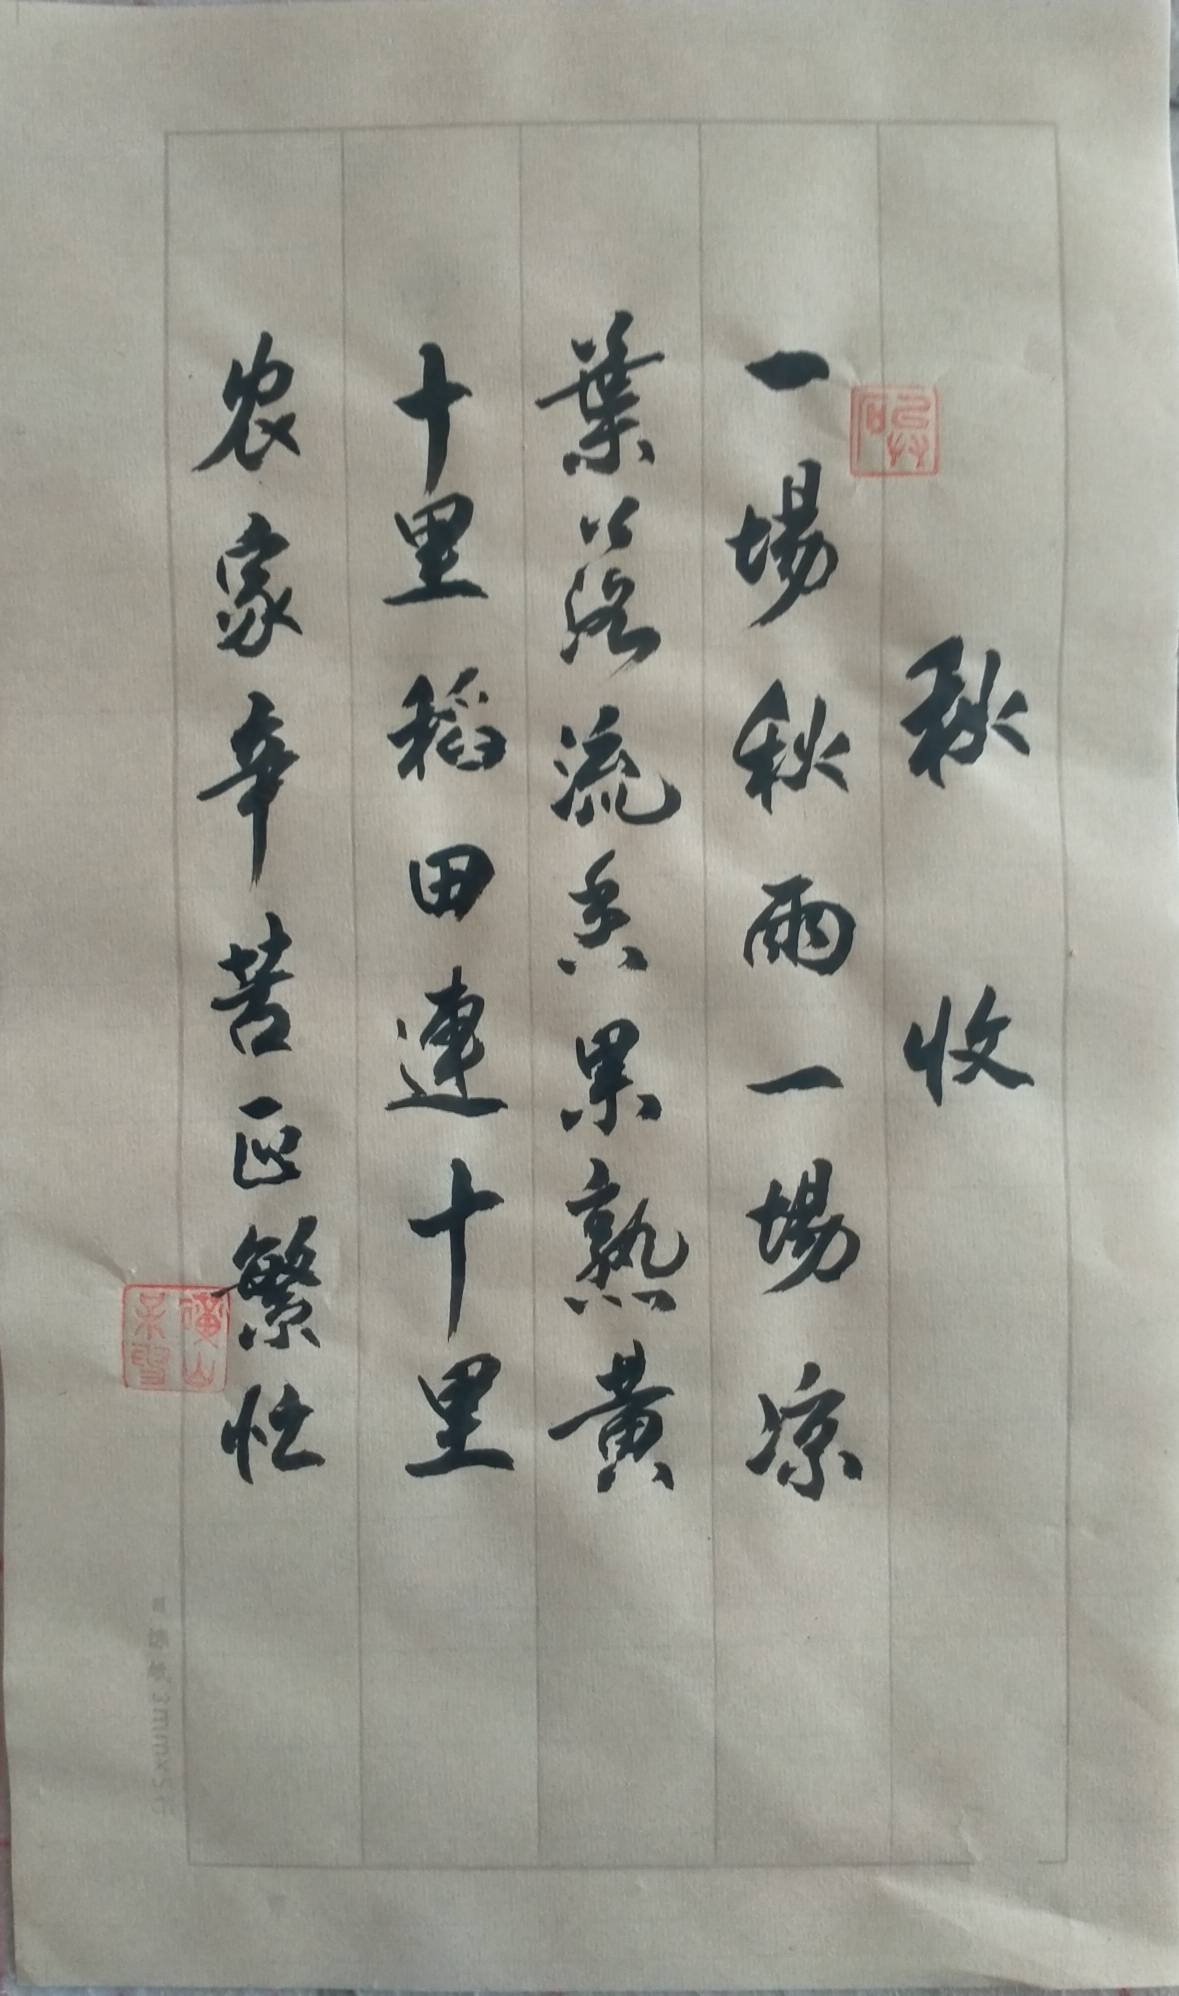 秋收
一場秋雨一場凉
葉落流香果熟黄
十里稻田連十里
农家辛苦正繁忙